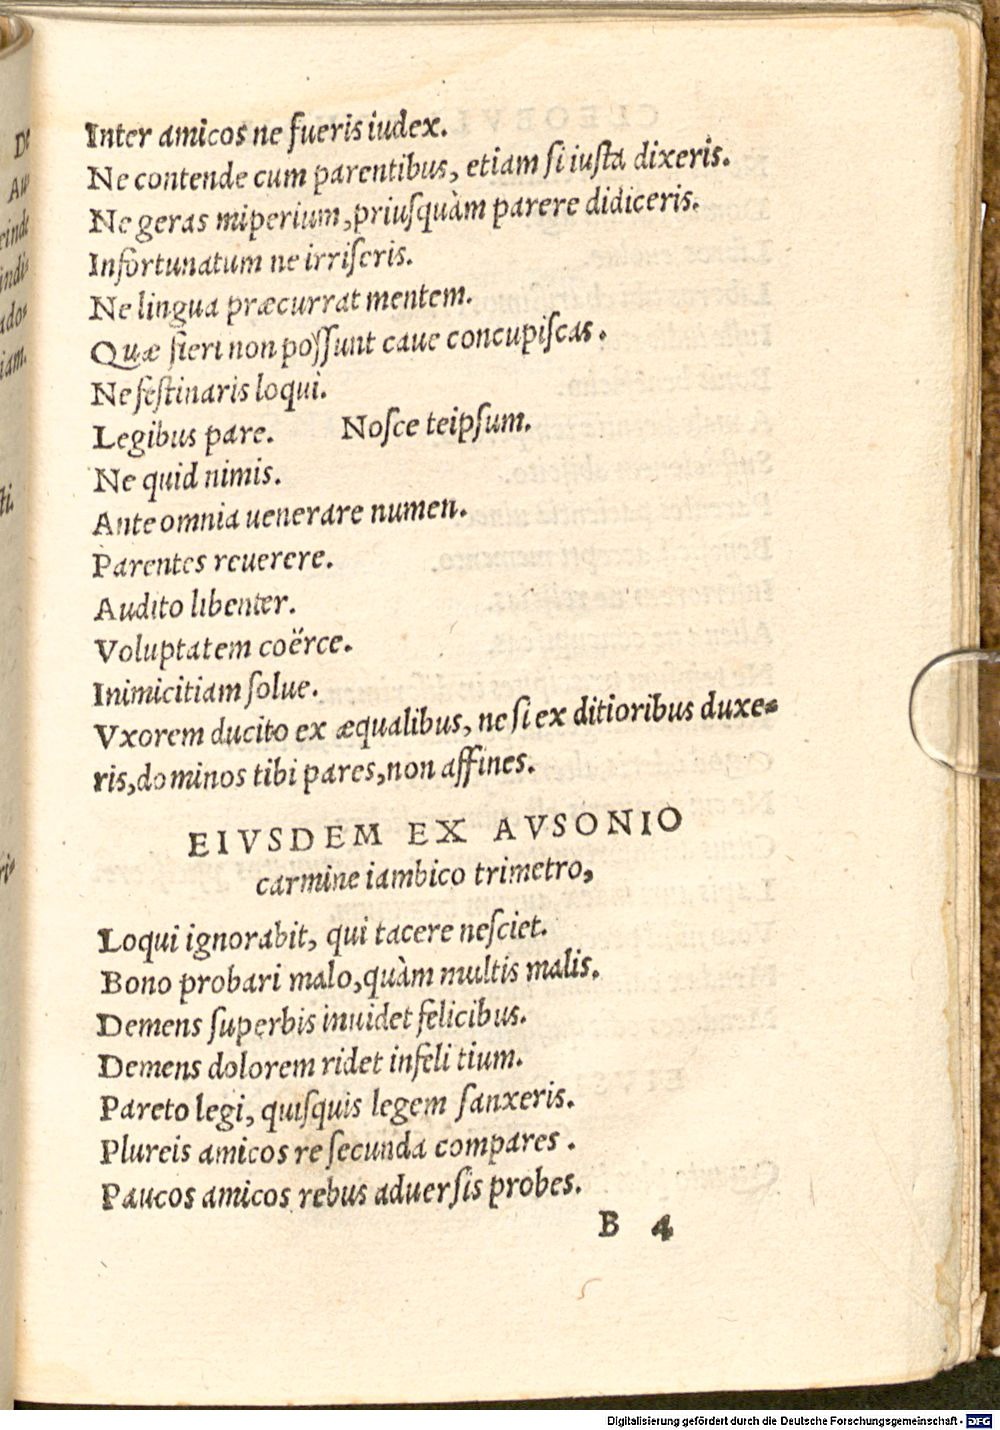 Inter amicos ne fueris iudex.
Ne contende cum parentibus, etiam ſi iuſta dixeris.
Ne geras miperium, priuſquàm parere didiceris.
Infortunatum ne irriſeris.
Ne lingua præcurrat mentem.
Quæ fieri non poſſunt caue concupiſcas.
Ne feſtinaris loqui.
Legibus pare. Noſce teipſum.
Ne quid nimis.
Ante omnia uenerare numen.
Parentes reuerere.
Audito libenter.
Voluptatem coërce.
Inimicitiam ſolue.
Vxorem ducito ex æqualibus, ne ſi ex ditioribus duxe=
ris, dominos tibi pares, non affines.
EIVSDEM EX AVSONIO
carmine iambico trimetro,
Loqui ignorabit, qui tacere neſciet.
Bono probari malo, quàm multis malis.
Demens ſuperbis inuidet felicibus.
Demens dolorem ridet infeli tium.
Pareto legi, quiſquis legem ſanxeris.
Plureis amicos re ſecunda compares.
Paucos amicos rebus aduerſis probes.
B 4
Digitalisierung gefördert durch die Deutsche Forschungsgemeinschaft - DFG